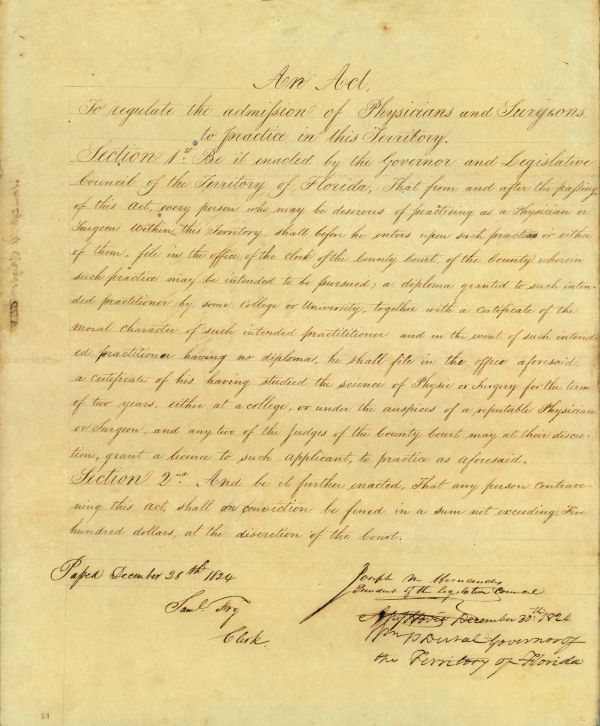 An Act,
To regulate the admission of Physicians and Surgeons,
to practice in this Territory.
Section 1st Be it enacted by the Governor and Legislative
Council of the Territory of Florida, That from and after the passing
of this Act, every person who may be desirous of practising as a Physician or
Surgeon within this Territory, shall before he enters upon such practice or either
of them, file in the office of the clerk of the County Court, of the County wherein
such practice may be intended to be pursued; a diploma granted to such inten-
ded practitioner by some College or University, together with a certificate of the
moral character of such intended practitioner and in the event of such intend-
ed practitioner having no diploma, he shall file in the office aforesaid
a certificate of his having studied the science of Physic or Surgery for the term
of two years, either at a college, or under the auspices of a reputable Physician
or Surgeon, and any two of the Judges of the County Court may at their discre-
tion, grant a licence to such applicant, to practice as aforesaid.
Section 2nd And be it further enacted, That any person contrave-
ning this act, shall on conviction be fined in a sum not exceeding Five
hundred dollars, at the discretion of the Court.
Passed December 28th 1824
Joseph M Hernandez
President of the Legislative Council
Saml. Fry
Clerk
December 30th 1824
Wm P Duval Governor of
the Territory of Florida
29